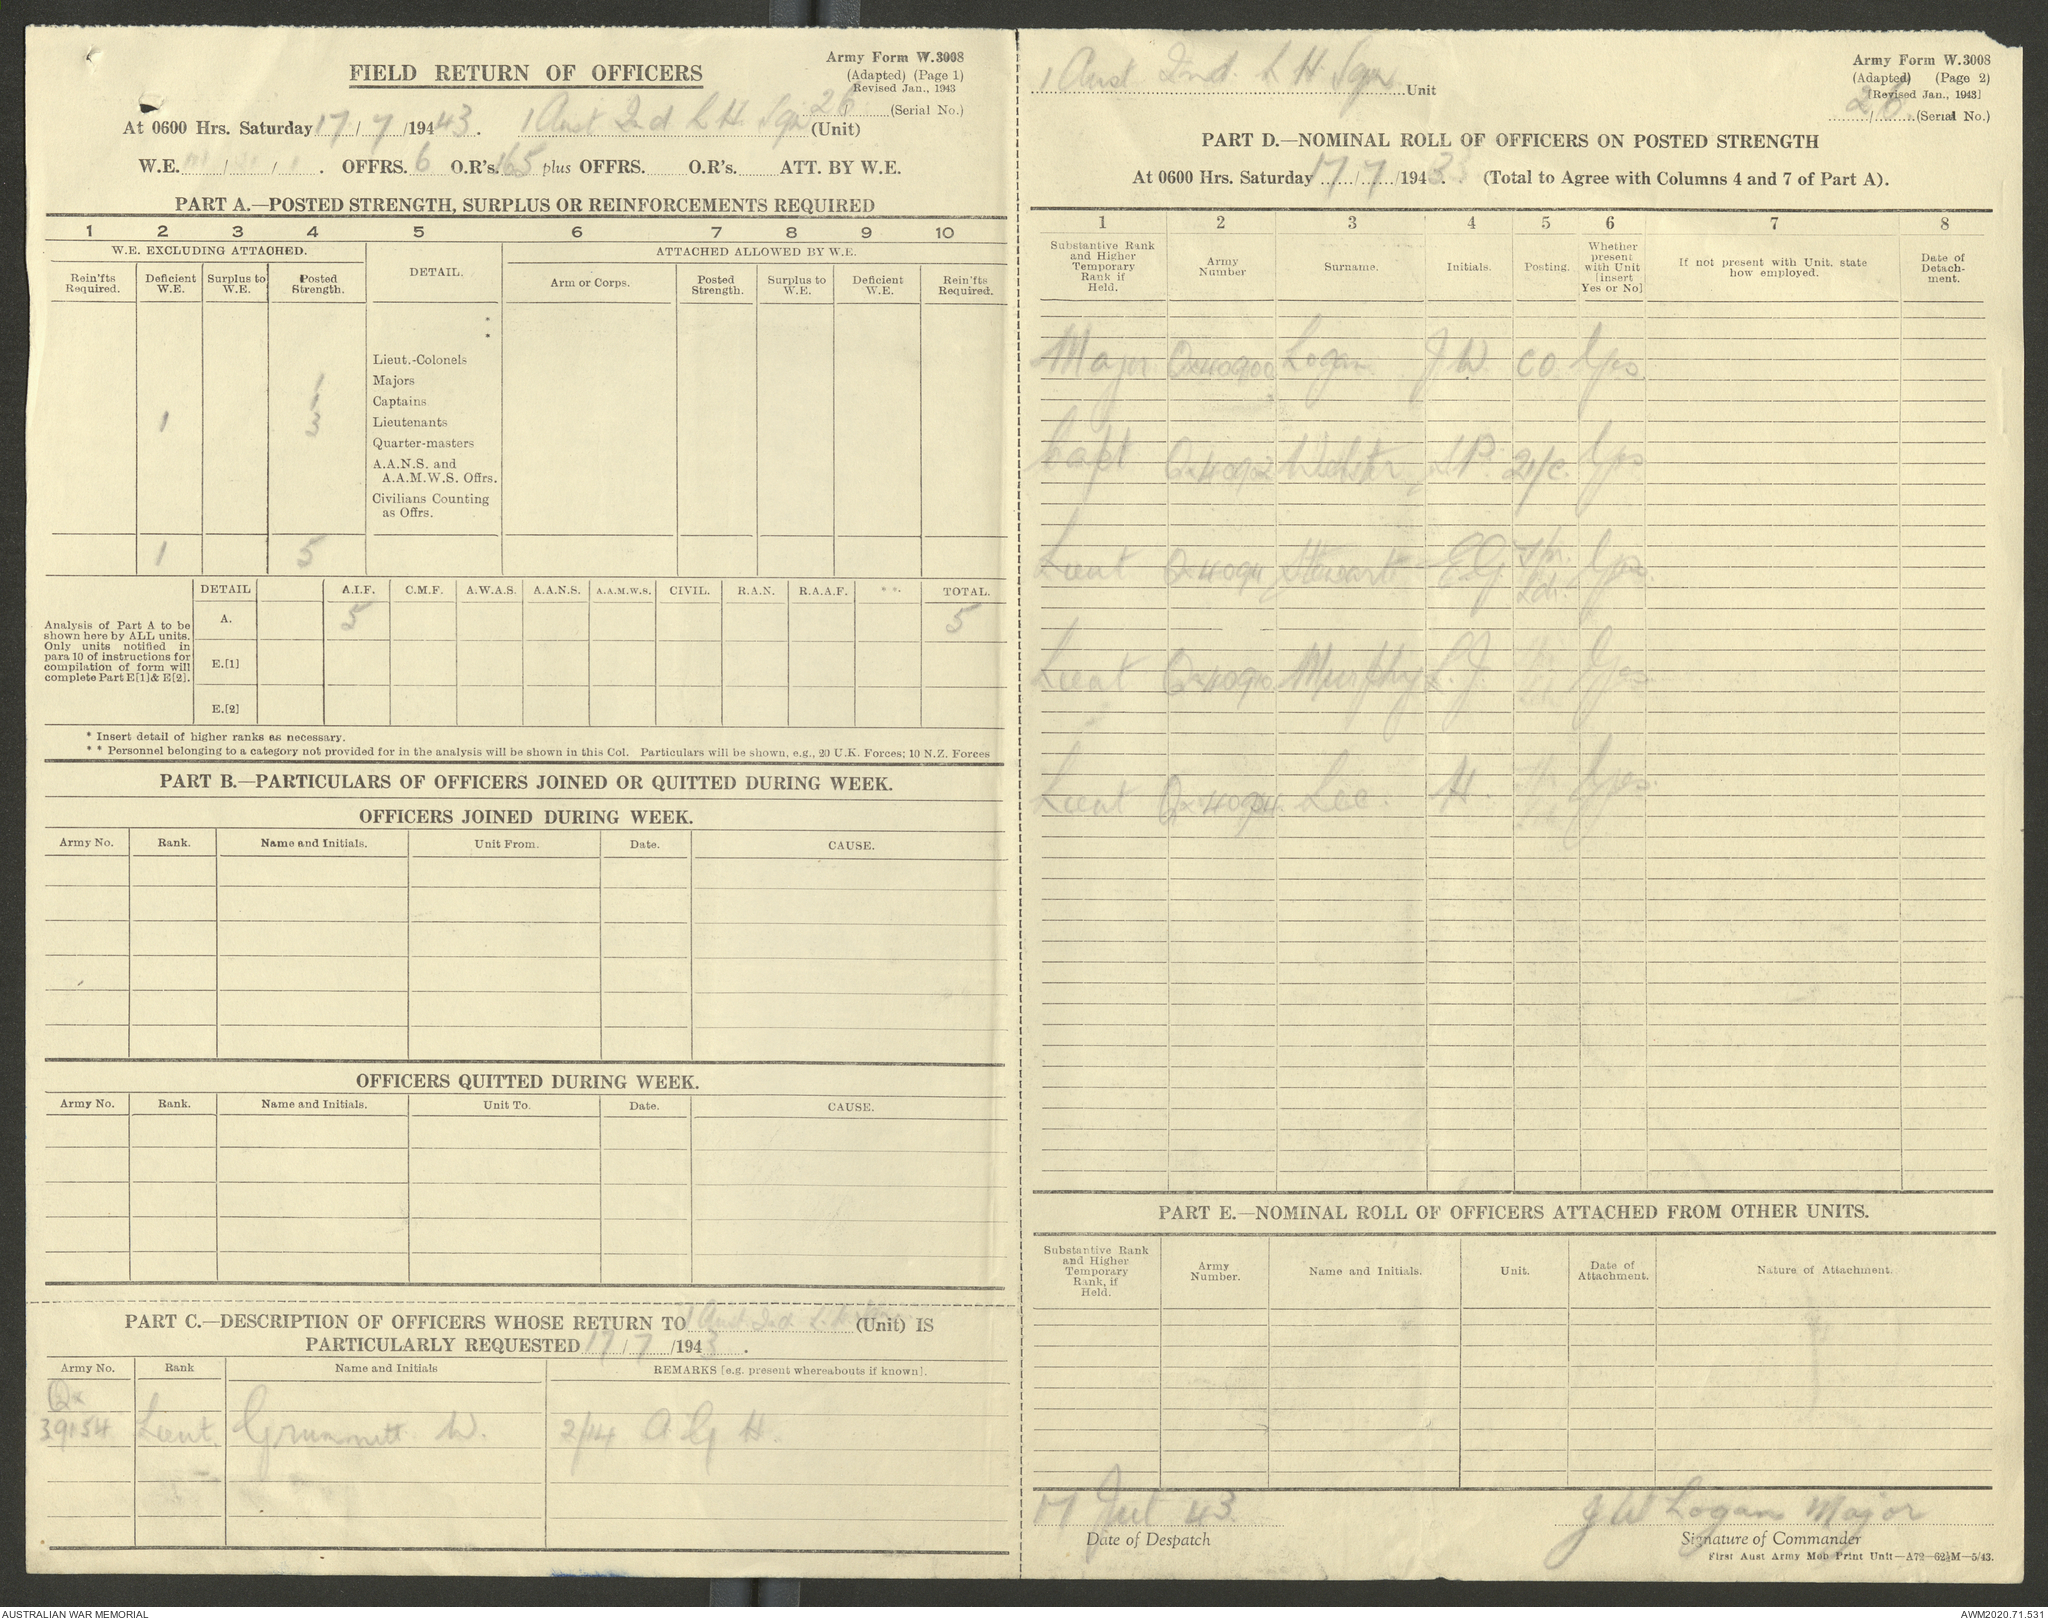 Army Form W.3008
(Adapted) (Page 1)
Revised Jan., 1943
FIELD RETURN OF OFFICERS
26 (Serial No.)
At 0600 Hrs. Saturday 17/7/1943. 1 Aust Ind L H Sqn (Unit)
W.E. / / . OFFRS. 6 O.R's. 165 plus OFFRS. O.R's. ATT. BY W.E.
PART A.—POSTED STRENGTH, SURPLUS OR REINFORCEMENTS REQUIRED
1 2 3 4 5 6 7 8 9 10
W.E. EXCLUDING ATTACHED. DETAIL. ATTACHED ALLOWED BY W.E.
Rein'fts Required. Deficient W.E. Surplus to W.E. Posted Strength. Arm or Corps. Posted Strength. Surplus to W.E. Deficient W.E. Rein'fts Required.
*
*
Lieut.-Colonels
1 Majors
1 Captains
1 3 Lieutenants
Quarter-masters
A.A.N.S. and
A.A.M.W.S. Offrs.
Civilians Counting
as Offrs.
1 5
DETAIL A.I.F. C.M.F. A.W.A.S. A.A.N.S. A.A.M.W.S. CIVIL. R.A.N. R.A.A.F. ** TOTAL.
Analysis of Part A to be
shown here by ALL units.
Only units notified in
para 10 of instructions for
compilation of form will
complete Part E[1] & E[2].
A. 5 5
E.[1]
E.[2]
* Insert detail of higher ranks as necessary.
* * Personnel belonging to a category not provided for in the analysis will be shown in this Col. Particulars will be shown, e.g., 20 U.K. Forces; 10 N.Z. Forces
PART B.—PARTICULARS OF OFFICERS JOINED OR QUITTED DURING WEEK.
OFFICERS JOINED DURING WEEK.
Army No. Rank. Name and Initials. Unit From. Date. CAUSE.
OFFICERS QUITTED DURING WEEK.
Army No. Rank. Name and Initials. Unit To. Date. CAUSE.
PART C.—DESCRIPTION OF OFFICERS WHOSE RETURN TO 1 Aust Ind L H Sqn (Unit) IS
PARTICULARLY REQUESTED 17/7/1943.
Army No. Rank Name and Initials REMARKS [e.g. present whereabouts if known].
Qx
39154 Lieut. Grummitt W. 2/14 A G H.
Army Form W.3008
(Adapted) (Page 2)
[Revised Jan., 1943]
1 Aust Ind. L H Sqn Unit
26 (Serial No.)
PART D.—NOMINAL ROLL OF OFFICERS ON POSTED STRENGTH
At 0600 Hrs. Saturday 17/7/1943. (Total to Agree with Columns 4 and 7 of Part A).
1 2 3 4 5 6 7 8
Substantive Rank and Higher Temporary Rank if Held. Army Number Surname. Initials. Posting. Whether present with Unit [insert Yes or No] If not present with Unit, state how employed. Date of Detachment.
Major Qx40900 Logan J W. CO Yes
Capt Qx40902 Webster L P. 2i/c. Yes
Lieut Stewart E.G. Tp. Ldr. Yes.
Lieut Qx40910 Murphy L. J. Yes
Lieut Lee. H. Yes.
PART E.—NOMINAL ROLL OF OFFICERS ATTACHED FROM OTHER UNITS.
Substantive Rank and Higher Temporary Rank, if Held. Army Number. Name and Initials. Unit. Date of Attachment. Nature of Attachment.
17 Jul 43 J W Logan Major
Date of Despatch Signature of Commander
First Aust Army Mob Print Unit—A72—62½M—5/43.
AUSTRALIAN WAR MEMORIAL AWM2020.71.531